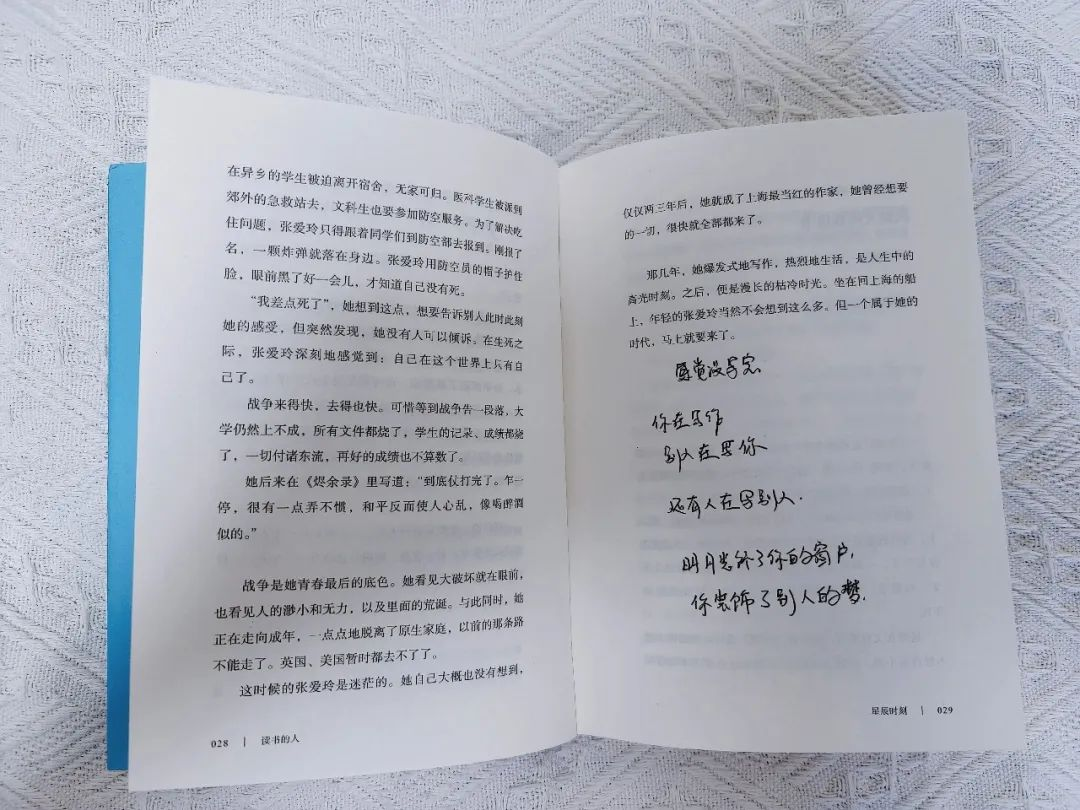 在异乡的学生被迫离开宿舍，无家可归。医科学生被派到
郊外的急救站去，文科生也要参加防空服务。为了解决吃
住问题，张爱玲只得跟着同学们到防空部去报到。刚报了
名，一颗炸弹就落在身边。张爱玲用防空员的帽子护住
脸，眼前黑了好一会儿，才知道自己没有死。
“我差点死了”，她想到这点，想要告诉别人此时此刻
她的感受，但突然发现，她没有人可以倾诉。在生死之
际，张爱玲深刻地感觉到：自己在这个世界上只有自
己了。
战争来得快，去得也快。可惜等到战争告一段落，大
学仍然上不成，所有文件都烧了，学生的记录、成绩都烧
了，一切付诸东流，再好的成绩也不算数了。
她后来在《烬余录》里写道：“到底仗打完了。乍一
停，很有一点弄不惯，和平反而使人心乱，像喝醉酒
似的。”
战争是她青春最后的底色。她看见大破坏就在眼前，
也看见人的渺小和无力，以及里面的荒诞。与此同时，她
正在走向成年，一点点地脱离了原生家庭，以前的那条路
不能走了。英国、美国暂时都去不了了。
这时候的张爱玲是迷茫的。她自己大概也没有想到，
028 | 读书的人
仅仅两三年后，她就成了上海最当红的作家，她曾经想要
的一切，很快就全部都来了。
那几年，她爆发式地写作，热烈地生活，是人生中的
高光时刻。之后，便是漫长的枯冷时光。坐在回上海的船
上，年轻的张爱玲当然不会想到这么多。但一个属于她的
时代，马上就要来了。
感觉没写完
你在写作
别人在写你
还有人在写别人.
明月装饰了你的窗户,
你装饰了别人的梦.
星辰时刻 | 029